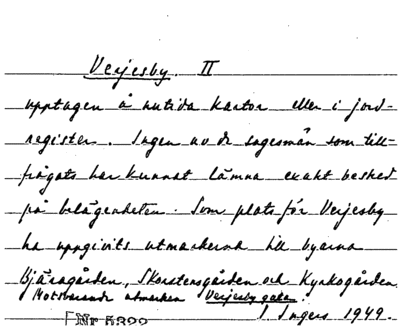 Verjesby. II
upptagen å nutida kartor eller i jord-
register. Ingen av de sagesmän som till-
frågats har kunnat lämna exakt besked
på belägenheten. Som plats för Verjesby
ha uppgivits utmarkerna till byarna
Bjäragården, Skorstensgården och Kyrkogården.
Motsvarande utmarken Verjesby
I. Ingers 1949.
Nr 5322